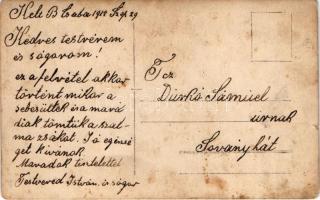 Kelt B Csaba 1918 Szep 29
Kedves testvérem
és sógorom!
ez a felvétel akkor
történt mikor a
sebesültek és a mara
diak tömtük a szal
ma zsákat. Jó egéssé
get kivánok
Maradok tisztelettel
Testvered István. és sógor
Tcz
Durkó Sámuel
urnak
Soványhát